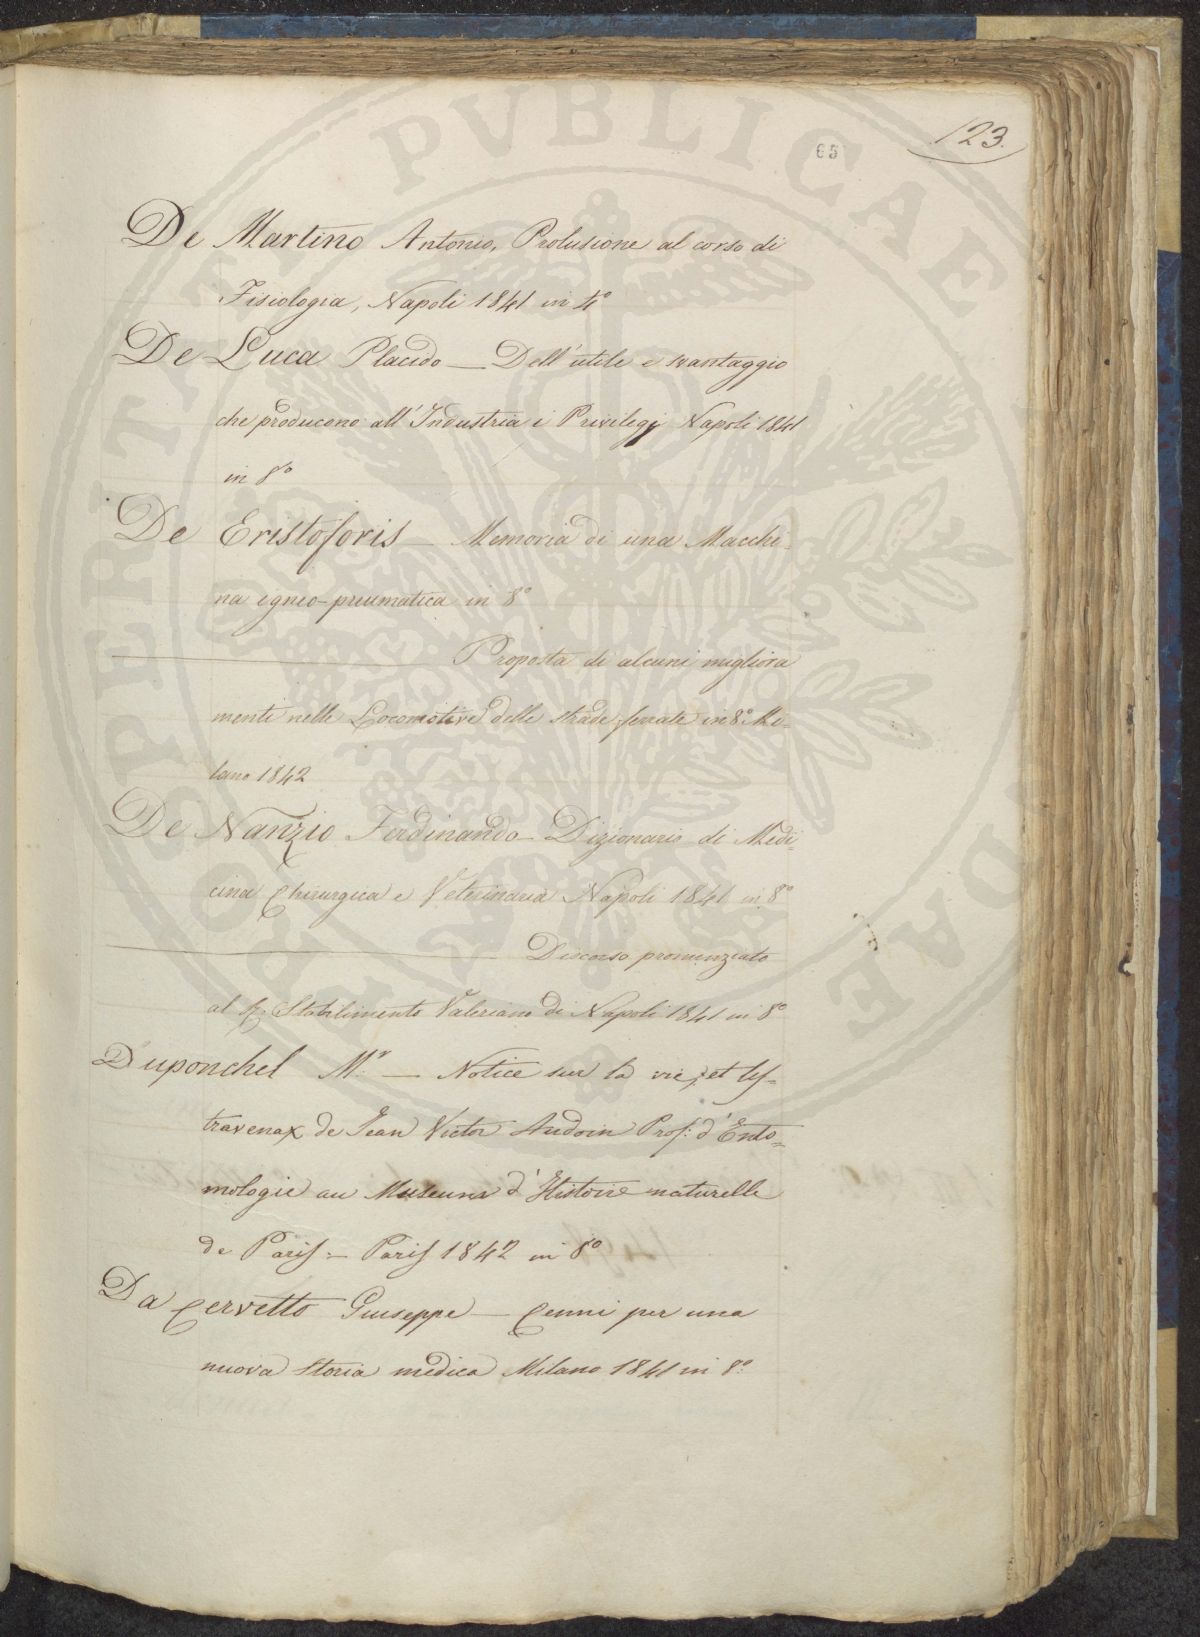 123.
65
De Martino Antonio, Prolusione al corso di
Fisiologia, Napoli 1841 in 4º
De Luca Placido — Dell'utile e svantaggio
che producono all'Industria i Privilegj Napoli 1841
in 8º
De Cristoforis — Memoria di una Macchi-
na igneo-pneumatica in 8º
Proposta di alcuni migliora
menti nelle Locomotive delle strade ferrate in 8º Mi-
lano 1842
De Nanzio Ferdinando – Dizionario di Medi-
cina Chirurgica e Veterinaria Napoli 1841 in 8º
Discorso pronunziato
al R. Stabilimento Valeriano di Napoli 1841 in 8º
Duponchel M.r — Notice sur la vie, et les-
travenax de Jean Victor Audoin Prof: d'Ento=
mologie au Museum d'Histoire naturelle
de Paris = Paris 1842 in 8º
Da Cervetto Giuseppe — Cenni per una
nuova storia medica Milano 1841 in 8º
PROSPERITATI PVBLICAE AVGENDAE